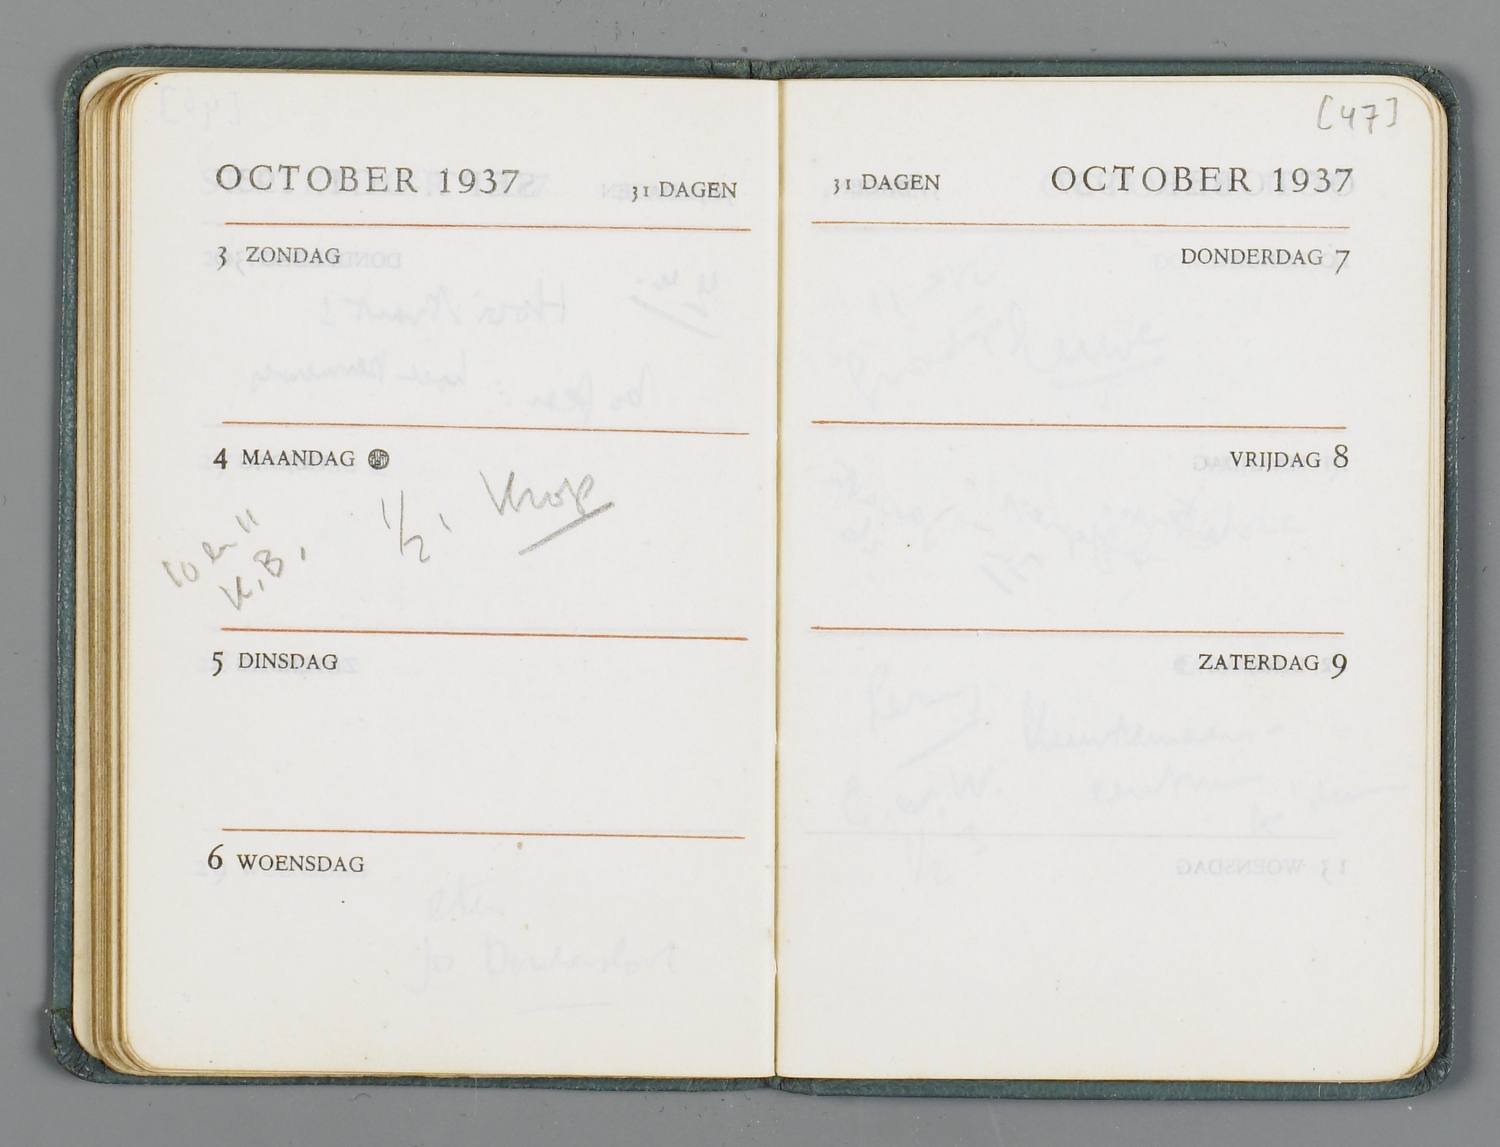 OCTOBER 1937 31 DAGEN
3 ZONDAG
4 MAANDAG
1/2, Krop
10 en 11
K.B.
5 DINSDAG
6 WOENSDAG
[47]
31 DAGEN OCTOBER 1937
DONDERDAG 7
VRIJDAG 8
ZATERDAG 9